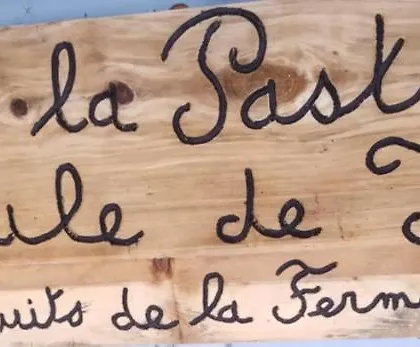 la Past
ule de
uits de la Ferm